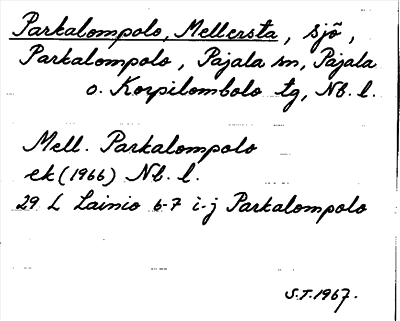 Parkalompolo, Mellersta, sjö,
Parkalompolo, Pajala sn, Pajala
o. Korpilombolo tg, Nb. l.
Mell. Parkalompolo
ek (1966) Nb. l.
29 L Lainio 6-7 i-j Parkalompolo
S.T. 1967.